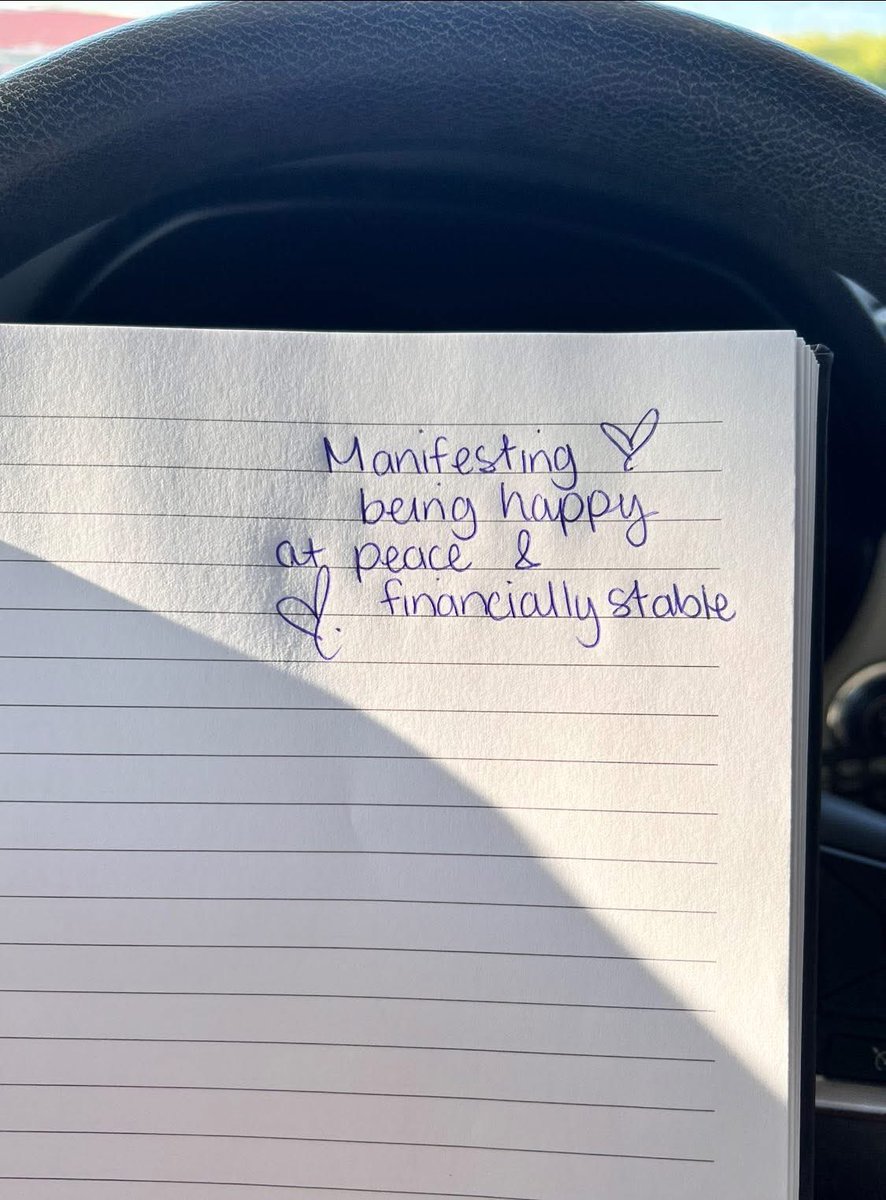 Manifesting ♡
being happy
at peace &
♡. financially stable